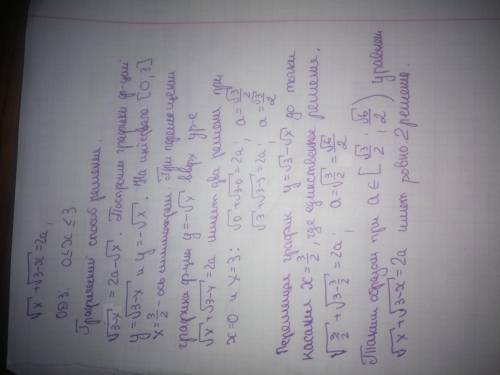 √x + √3-x = 2a;
ОДЗ. 0≤x≤3.
Графический способ решения.
√3-x = 2a-√x. Построим графики ф-ций
y=√3-x и y=-√x. На интервале [0,3]
x=3/2 - ось симметрии. При перемещении
графика ф-ции y=-√x вверх ур-е
√x+√3-x=2a имеет два решения при
x=0 и x=3: √0+√3-0=2a; a=√3/2
√3+√3-3=2a; a=√3/2
Перемещая график y=√3-√x до точки
касания x=3/2, где единственное решение.
√3/2 + √3-3/2 = 2a; a=√3/2=√6/2
Таким образом при a∈[√3/2; √6/2) уравнение
√x+√3-x=2a имеет ровно 2 решение.